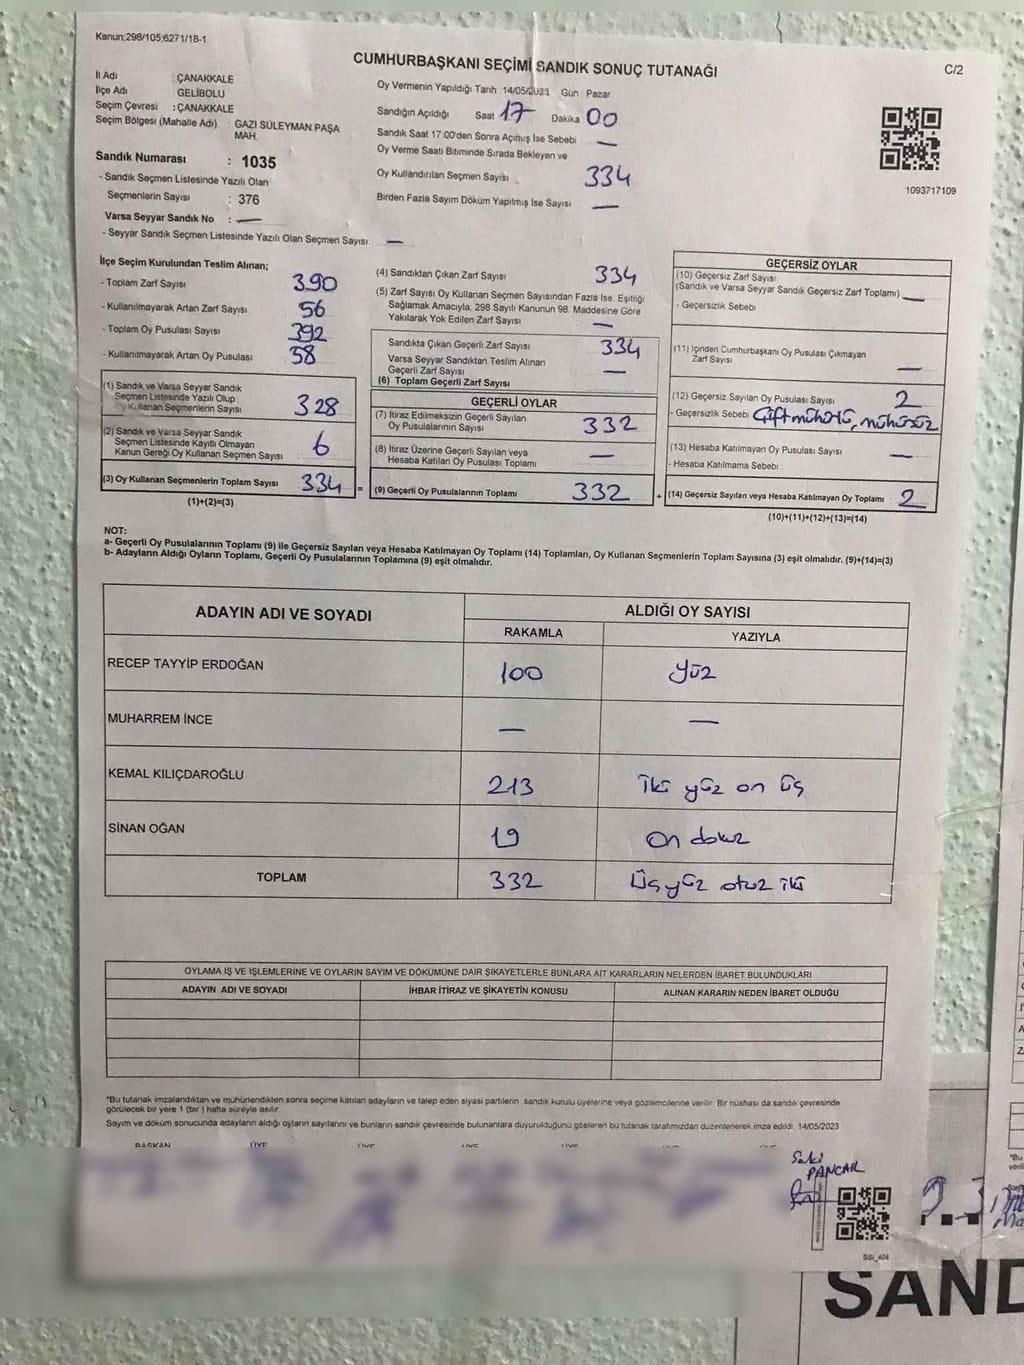 Kanun:298/105;6271/18-1
CUMHURBAŞKANI SEÇİMİ SANDIK SONUÇ TUTANAĞI
C/2
İl Adı : ÇANAKKALE
İlçe Adı : GELİBOLU
Seçim Çevresi : ÇANAKKALE
Seçim Bölgesi (Mahalle Adı) : GAZİ SÜLEYMAN PAŞA
MAH.
Sandık Numarası : 1035
- Sandık Seçmen Listesinde Yazılı Olan
Seçmenlerin Sayısı : 376
Varsa Seyyar Sandık No : —
- Seyyar Sandık Seçmen Listesinde Yazılı Olan Seçmen Sayısı: —
Oy Vermenin Yapıldığı Tarih 14/05/2023 Gün Pazar
Sandığın Açıldığı Saat 17 Dakika 00
Sandık Saat 17:00'den Sonra Açılmış İse Sebebi —
Oy Verme Saati Bitiminde Sırada Bekleyen ve
Oy Kullandırılan Seçmen Sayısı 334
Birden Fazla Sayım Döküm Yapılmış İse Sayısı —
1093717109
İlçe Seçim Kurulundan Teslim Alınan;
- Toplam Zarf Sayısı : 390
- Kullanılmayarak Artan Zarf Sayısı : 56
- Toplam Oy Pusulası Sayısı : 392
- Kullanılmayarak Artan Oy Pusulası : 58
(1) Sandık ve Varsa Seyyar Sandık
Seçmen Listesinde Yazılı Olup
Oy Kullanan Seçmenlerin Sayısı : 328
(2) Sandık ve Varsa Seyyar Sandık
Seçmen Listesinde Kayıtlı Olmayan
Kanun Gereği Oy Kullanan Seçmen Sayısı : 6
(3) Oy Kullanan Seçmenlerin Toplam Sayısı : 334 =
(1)+(2)=(3)
(4) Sandıktan Çıkan Zarf Sayısı 334
(5) Zarf Sayısı Oy Kullanan Seçmen Sayısından Fazla İse, Eşitliği
Sağlamak Amacıyla, 298 Sayılı Kanunun 98. Maddesine Göre
Yakılarak Yok Edilen Zarf Sayısı —
Sandıkta Çıkan Geçerli Zarf Sayısı 334
Varsa Seyyar Sandıktan Teslim Alınan
Geçerli Zarf Sayısı —
(6) Toplam Geçerli Zarf Sayısı
GEÇERLİ OYLAR
(7) İtiraz Edilmeksizin Geçerli Sayılan
Oy Pusulalarının Sayısı 332
(8) İtiraz Üzerine Geçerli Sayılan veya
Hesaba Katılan Oy Pusulası Toplamı —
(9) Geçerli Oy Pusulalarının Toplamı 332 +
GEÇERSİZ OYLAR
(10) Geçersiz Zarf Sayısı
(Sandık ve Varsa Seyyar Sandık Geçersiz Zarf Toplamı) —
- Geçersizlik Sebebi :
(11) İçinden Cumhurbaşkanı Oy Pusulası Çıkmayan
Zarf Sayısı —
(12) Geçersiz Sayılan Oy Pusulası Sayısı 2
- Geçersizlik Sebebi Çift mühürlü, mühürsüz
(13) Hesaba Katılmayan Oy Pusulası Sayısı —
- Hesaba Katılmama Sebebi
(14) Geçersiz Sayılan veya Hesaba Katılmayan Oy Toplamı 2
(10)+(11)+(12)+(13)=(14)
NOT:
a- Geçerli Oy Pusulalarının Toplamı (9) ile Geçersiz Sayılan veya Hesaba Katılmayan Oy Toplamı (14) Toplamları, Oy Kullanan Seçmenlerin Toplam Sayısına (3) eşit olmalıdır. (9)+(14)=(3)
b- Adayların Aldığı Oyların Toplamı, Geçerli Oy Pusulalarının Toplamına (9) eşit olmalıdır.
ADAYIN ADI VE SOYADI ALDIĞI OY SAYISI
RAKAMLA YAZIYLA
RECEP TAYYİP ERDOĞAN 100 yüz
MUHARREM İNCE — —
KEMAL KILIÇDAROĞLU 213 iki yüz on üç
SİNAN OĞAN 19 on dokuz
TOPLAM 332 Üç yüz otuz iki
OYLAMA İŞ VE İŞLEMLERİNE VE OYLARIN SAYIM VE DÖKÜMÜNE DAİR ŞİKAYETLERLE BUNLARA AİT KARARLARIN NELERDEN İBARET BULUNDUKLARI
ADAYIN ADI VE SOYADI İHBAR İTİRAZ VE ŞİKAYETİN KONUSU ALINAN KARARIN NEDEN İBARET OLDUĞU
*Bu tutanak imzalandıktan ve mühürlendikten sonra seçime katılan adayların ve talep eden siyasi partilerin, sandık kurulu üyelerine veya gözlemcilerine verilir. Bir nüshası da sandık çevresinde
görülecek bir yere 1 (bir ) hafta süreyle asılır.
Sayım ve döküm sonucunda adayların aldığı oyların sayılarını ve bunların sandık çevresinde bulunanlara duyurulduğunu gösteren bu tutanak tarafımızdan düzenlenerek imza edildi. 14/05/2023
BAŞKAN ÜYE ÜYE ÜYE ÜYE
PANCAR
SAND